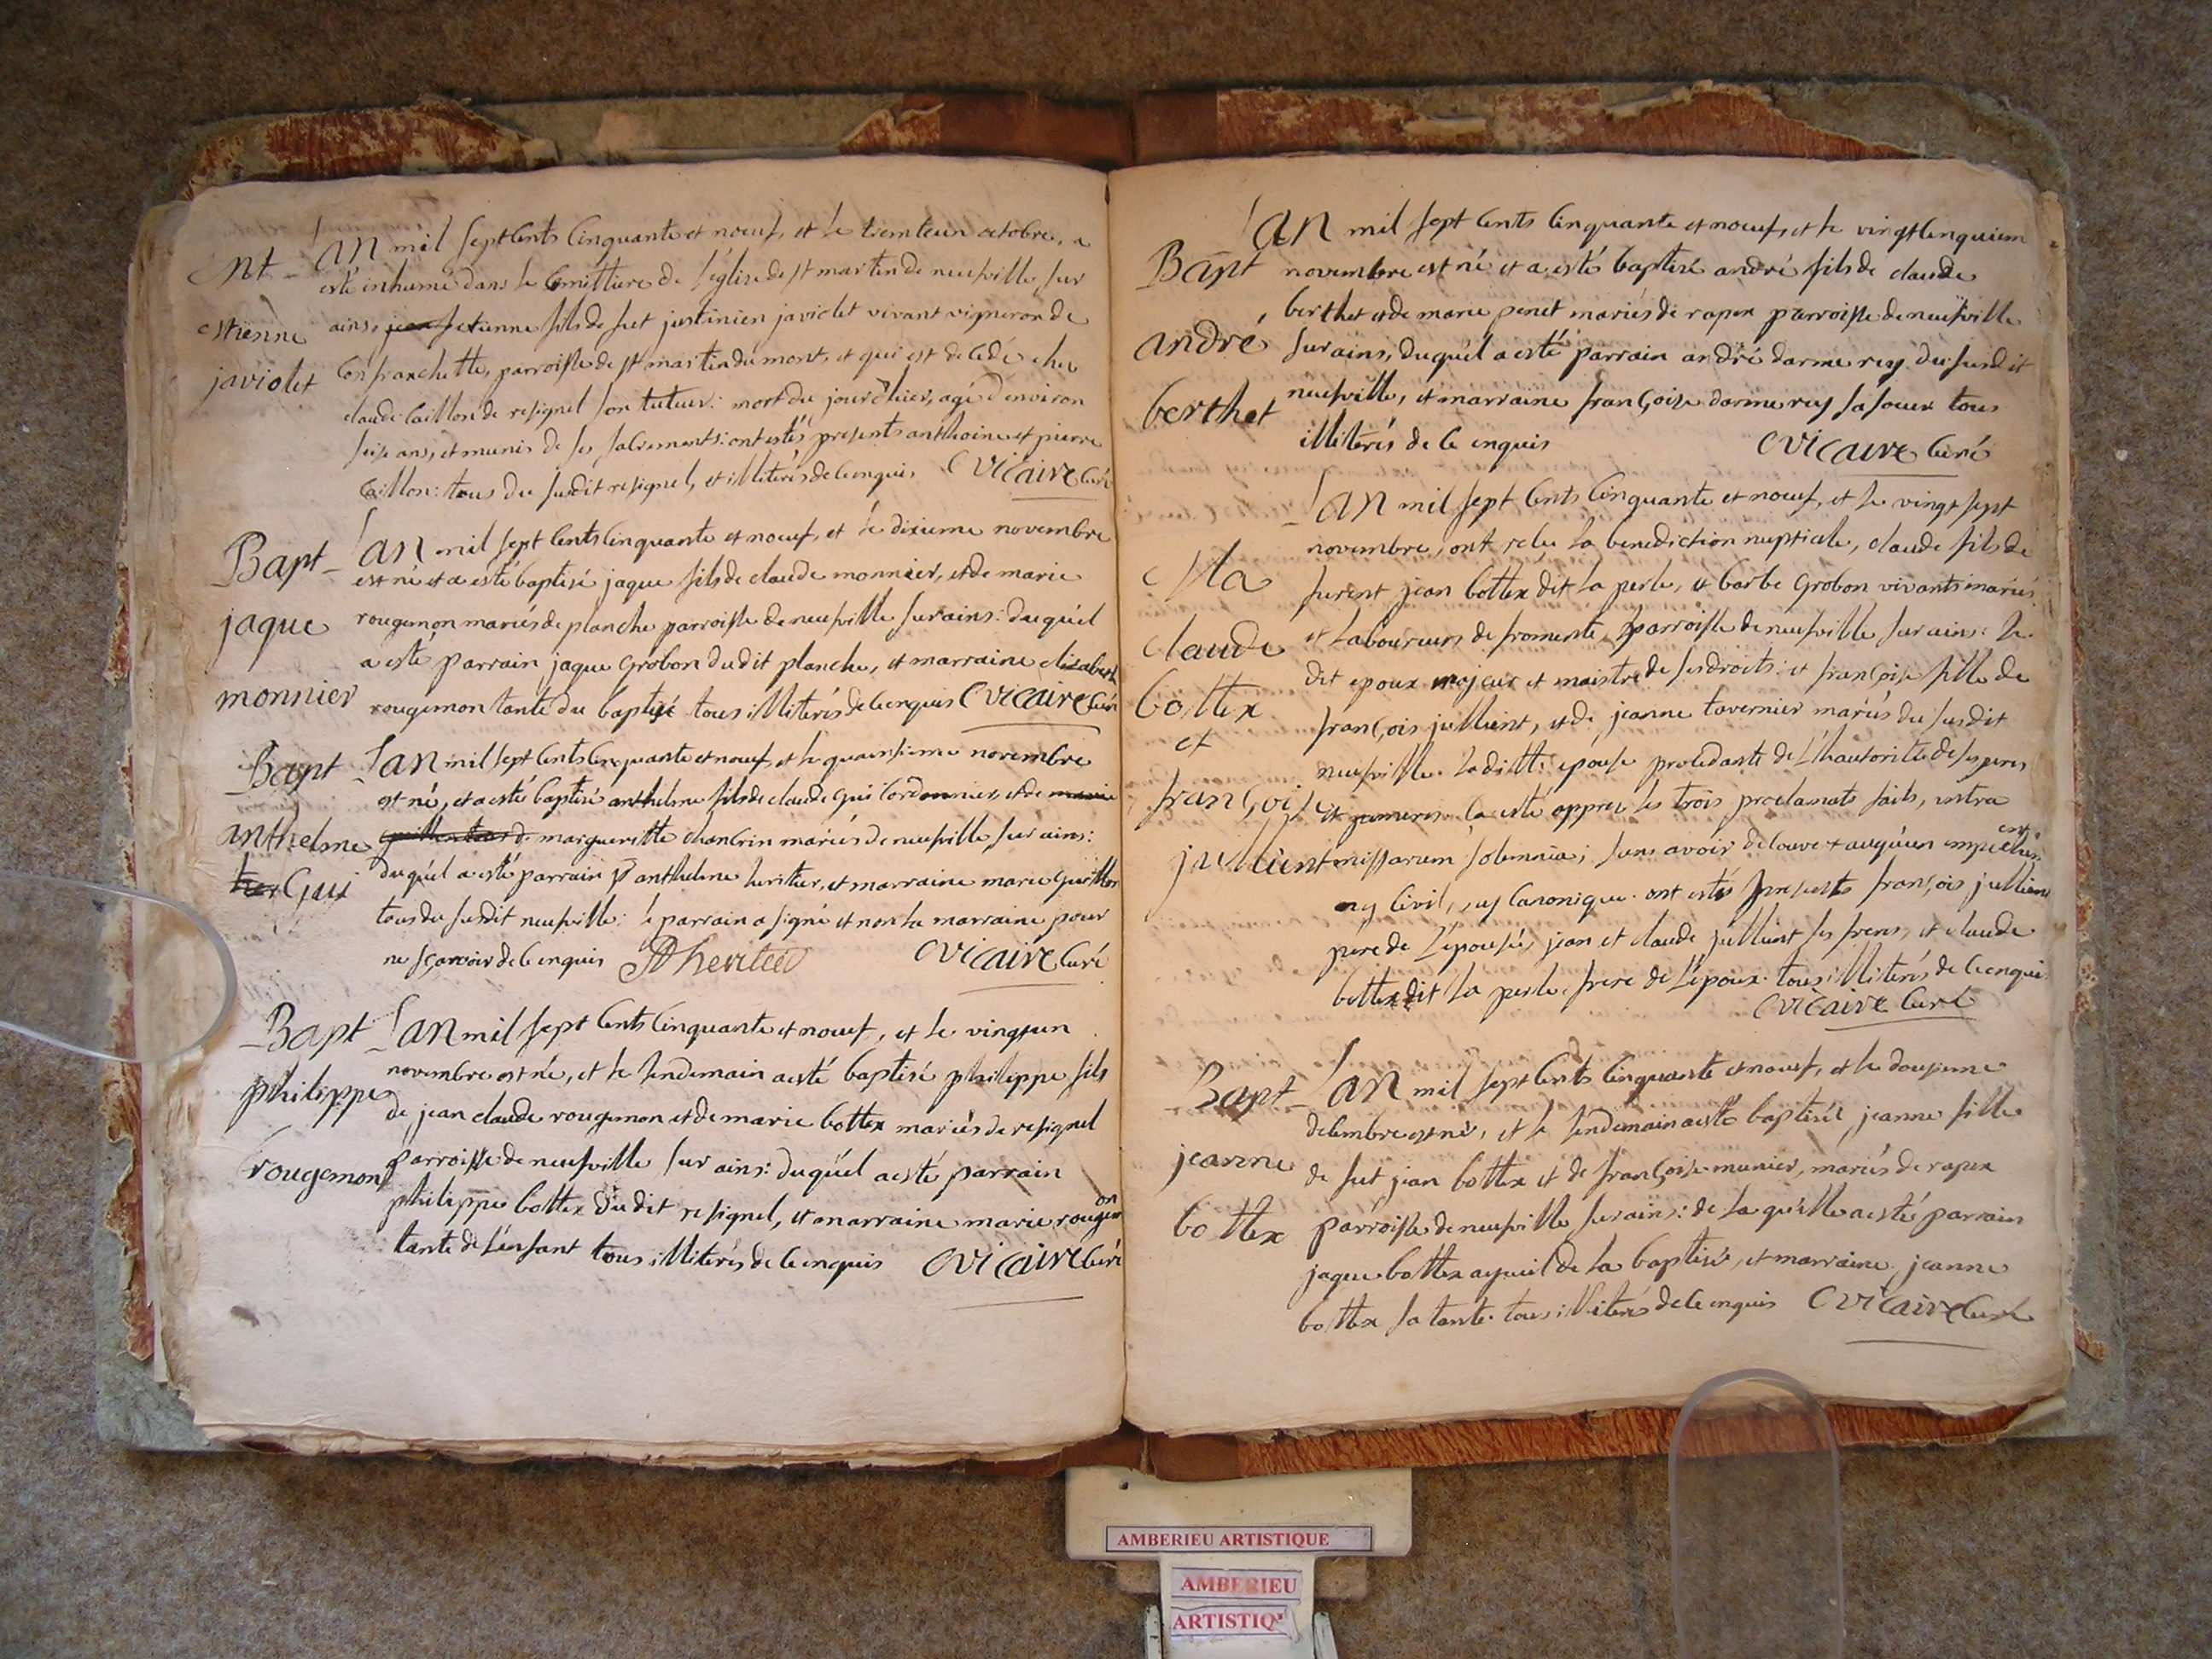 Nt
Lan mil sept cents cinquante et noeuf, et le trenteun octobre, a
esté inhumé dans le cimettiere de l'église de st martin de neufville sur
estienne
javiolet
ains, jean etienne fils de fut justinien javiolet vivant vigneron de
confranchette, parroisse de st martin du mont, et qui est decedé chez
claude caillon de resignel son tuteur: mort du jour d'hier, agé d'environ
seise ans, et munis de ses sacrements: ont estés presents anthoine et pierre
caillon: tous du susdit resignel, et illiterés de ce enquis CVicaire curé
Bapt
jaque
monnier
Lan mil sept cents cinquante et noeuf, et le dixieme novembre
est né et a esté baptisé jaque fils de claude monnier, et de marie
rougemon mariés de planche parroisse de neufville sur ains: duquél
a esté parrain jaque grobon dudit planche, et marraine elizabeth
rougemon tante du baptisé tous illiterés de ce enquis CVicaire curé
Bapt
anthelme
Gui
Lan mil sept cents cinquante et noeuf, et le quainsieme novembre
est né, et a esté baptisé anthelme fils de claude gui cordonnier, et de marie
de margueritte chancrin mariés de neufville sur ains:
duquél a esté parrain anthelme heritier, et marraine marie guillon
tous du susdit neufville: le parrain a signé et non la marraine pour
ne sçavoir de ce enquis heritier CVicaire curé
Bapt
philippe
rougemon
Lan mil sept cents cinquante et noeuf, et le vingtun
novembre est né, et le lendemain a esté baptisé philippe fils
de jean claude rougemon et de marie bottex mariés de resignel
parroisse de neufville sur ains: duquél a esté parrain
philippe bottex dudit resignel, et marraine marie rougemon
tante de l'enfant tous illiterés de ce enquis CVicaire curé
Bapt
andré
berthet
Lan mil sept cents cinquante et noeuf, et le vingtcenquiem
novembre est né et a esté baptisé andré fils de claude
berthet et de marie penet mariés de rapex parroisse de neufville
sur ains, duquél a esté parrain andré darmerey du susdit
neufville, et marraine françoise darmerey sa soeur tous
illiterés de ce enquis CVicaire curé
Ma
claude
bottex
et
françoise
jullient
Lan mil sept cents cinquante et noeuf, et le vingt sept
novembre, ont reçu la benediction nuptiale, claude fils de
furent jean bottex dit la perle, et barbe grobon vivants mariés
et laboureurs de fromente, parroisse de neufville sur ains: le
dit epoux majeur et maistre de ses droits: et françoise fille de
françois jullient, et de jeanne tavernier mariés du susdit
neufville. ladite épouse procedante de l'hautorité de ses peres
et meres. ça esté appres les trois proclamats faits, intra
missarum solemnia; sans avoir decouvert auquéun empechement
ny civil, ny canonique. ont estés presents françois jullient
pere de l'épousée, jean et claude jullient ses freres, et claude
bottex dit la perle frere de l'époux. tous illiterés de ce enquis.
CVicaire curé
Bapt
jeanne
bottex
Lan mil sept cents cinquante et noeuf, et le dousieme
decembre est né, et le lendemain a esté baptisée jeanne fille
de fut jean bottex et de françoise munier, mariés de rapex
parroisse de neufville sur ains: de laquélle a esté parrain
jaque bottex ayeuil de la baptisée, et marraine jeanne
bottex sa tante. tous illiterés de ce enquis CVicaire curé
AMBERIEU ARTISTIQUE
AMBERIEU
ARTISTIQ